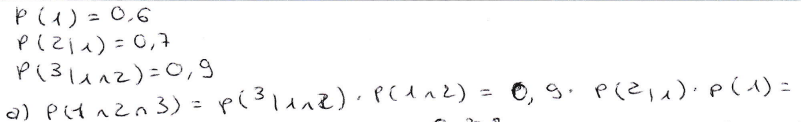 P(1) = 0.6
P(2|1) = 0,7
P(3|1∩2) = 0,9
a) P(1∩2∩3) = P(3|1∩2) · P(1∩2) = 0,9 · P(2|1) · P(1) =